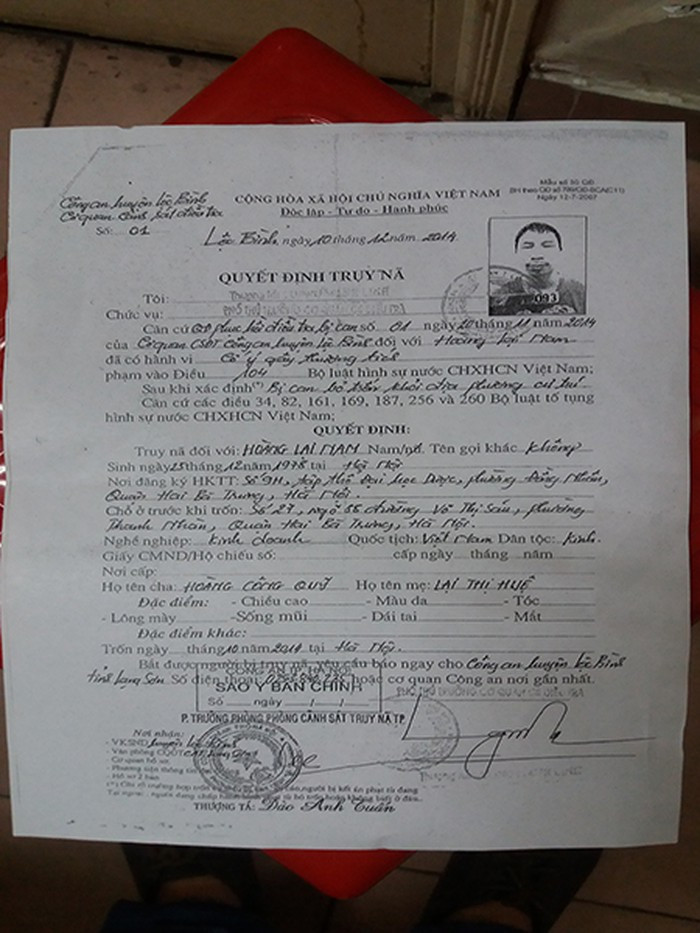 Công an huyện Lộc Bình
Cơ quan cảnh sát điều tra
Số: 01
CỘNG HÒA XÃ HỘI CHỦ NGHĨA VIỆT NAM
Độc lập - Tự do - Hạnh phúc
Mẫu số
BH theo QĐ số
Ngày 12-7-2007
Lộc Bình, ngày 10 tháng 12 năm 2014
093
QUYẾT ĐỊNH TRUY NÃ
Tôi:
Chức vụ:
Căn cứ QĐ phục hồi điều tra bị can số 01 ngày 20 tháng 11 năm 2014
của Cơ quan CSĐT Công an huyện Lộc Bình đối với Hoàng Lại Nam
đã có hành vi Cố ý gây thương tích
phạm vào Điều 104 Bộ luật hình sự nước CHXHCN Việt Nam;
Sau khi xác định(*) Bị can bỏ trốn khỏi địa phương cư trú
Căn cứ các điều 34, 82, 161, 169, 187, 256 và 260 Bộ luật tố tụng
hình sự nước CHXHCN Việt Nam;
QUYẾT ĐỊNH:
Truy nã đối với: HOÀNG LẠI NAM Nam/nữ. Tên gọi khác Không
Sinh ngày 25 tháng 12 năm 1978 tại Hà Nội
Nơi đăng ký HKTT: Số 9H, tập thể Đại học Dược, phường Đồng Nhân,
Quận Hai Bà Trưng, Hà Nội.
Chỗ ở trước khi trốn: Số 27, ngõ 88 đường Võ Thị Sáu, phường
Thanh Nhàn, Quận Hai Bà Trưng, Hà Nội.
Nghề nghiệp: Kinh doanh Quốc tịch: Việt Nam Dân tộc: Kinh.
Giấy CMND/Hộ chiếu số: cấp ngày tháng năm
Nơi cấp:
Họ tên cha: HOÀNG CÔNG QUỲ Họ tên mẹ: LẠI THỊ HUỆ
Đặc điểm: - Chiều cao - Màu da - Tóc
- Lông mày - Sống mũi - Dái tai - Mắt
Đặc điểm khác:
Trốn ngày tháng 10 năm 2014 tại Hà Nội.
Bắt được người bị truy nã, yêu cầu báo ngay cho Công an huyện Lộc Bình
tỉnh Lạng Sơn Số điện thoại hoặc cơ quan Công an nơi gần nhất.
CÔNG AN TP. HÀ NỘI
SAO Y BẢN CHÍNH
Số ngày / /
P. TRƯỞNG PHÒNG PHÒNG CẢNH SÁT TRUY NÃ TP
Nơi nhận:
- VKSND huyện Lộc Bình
- Văn phòng CQĐT
- Cơ quan hồ sơ
- Phương tiện thông tin
- Hồ sơ 2 bản
THƯỢNG TÁ: Đào Anh Tuấn